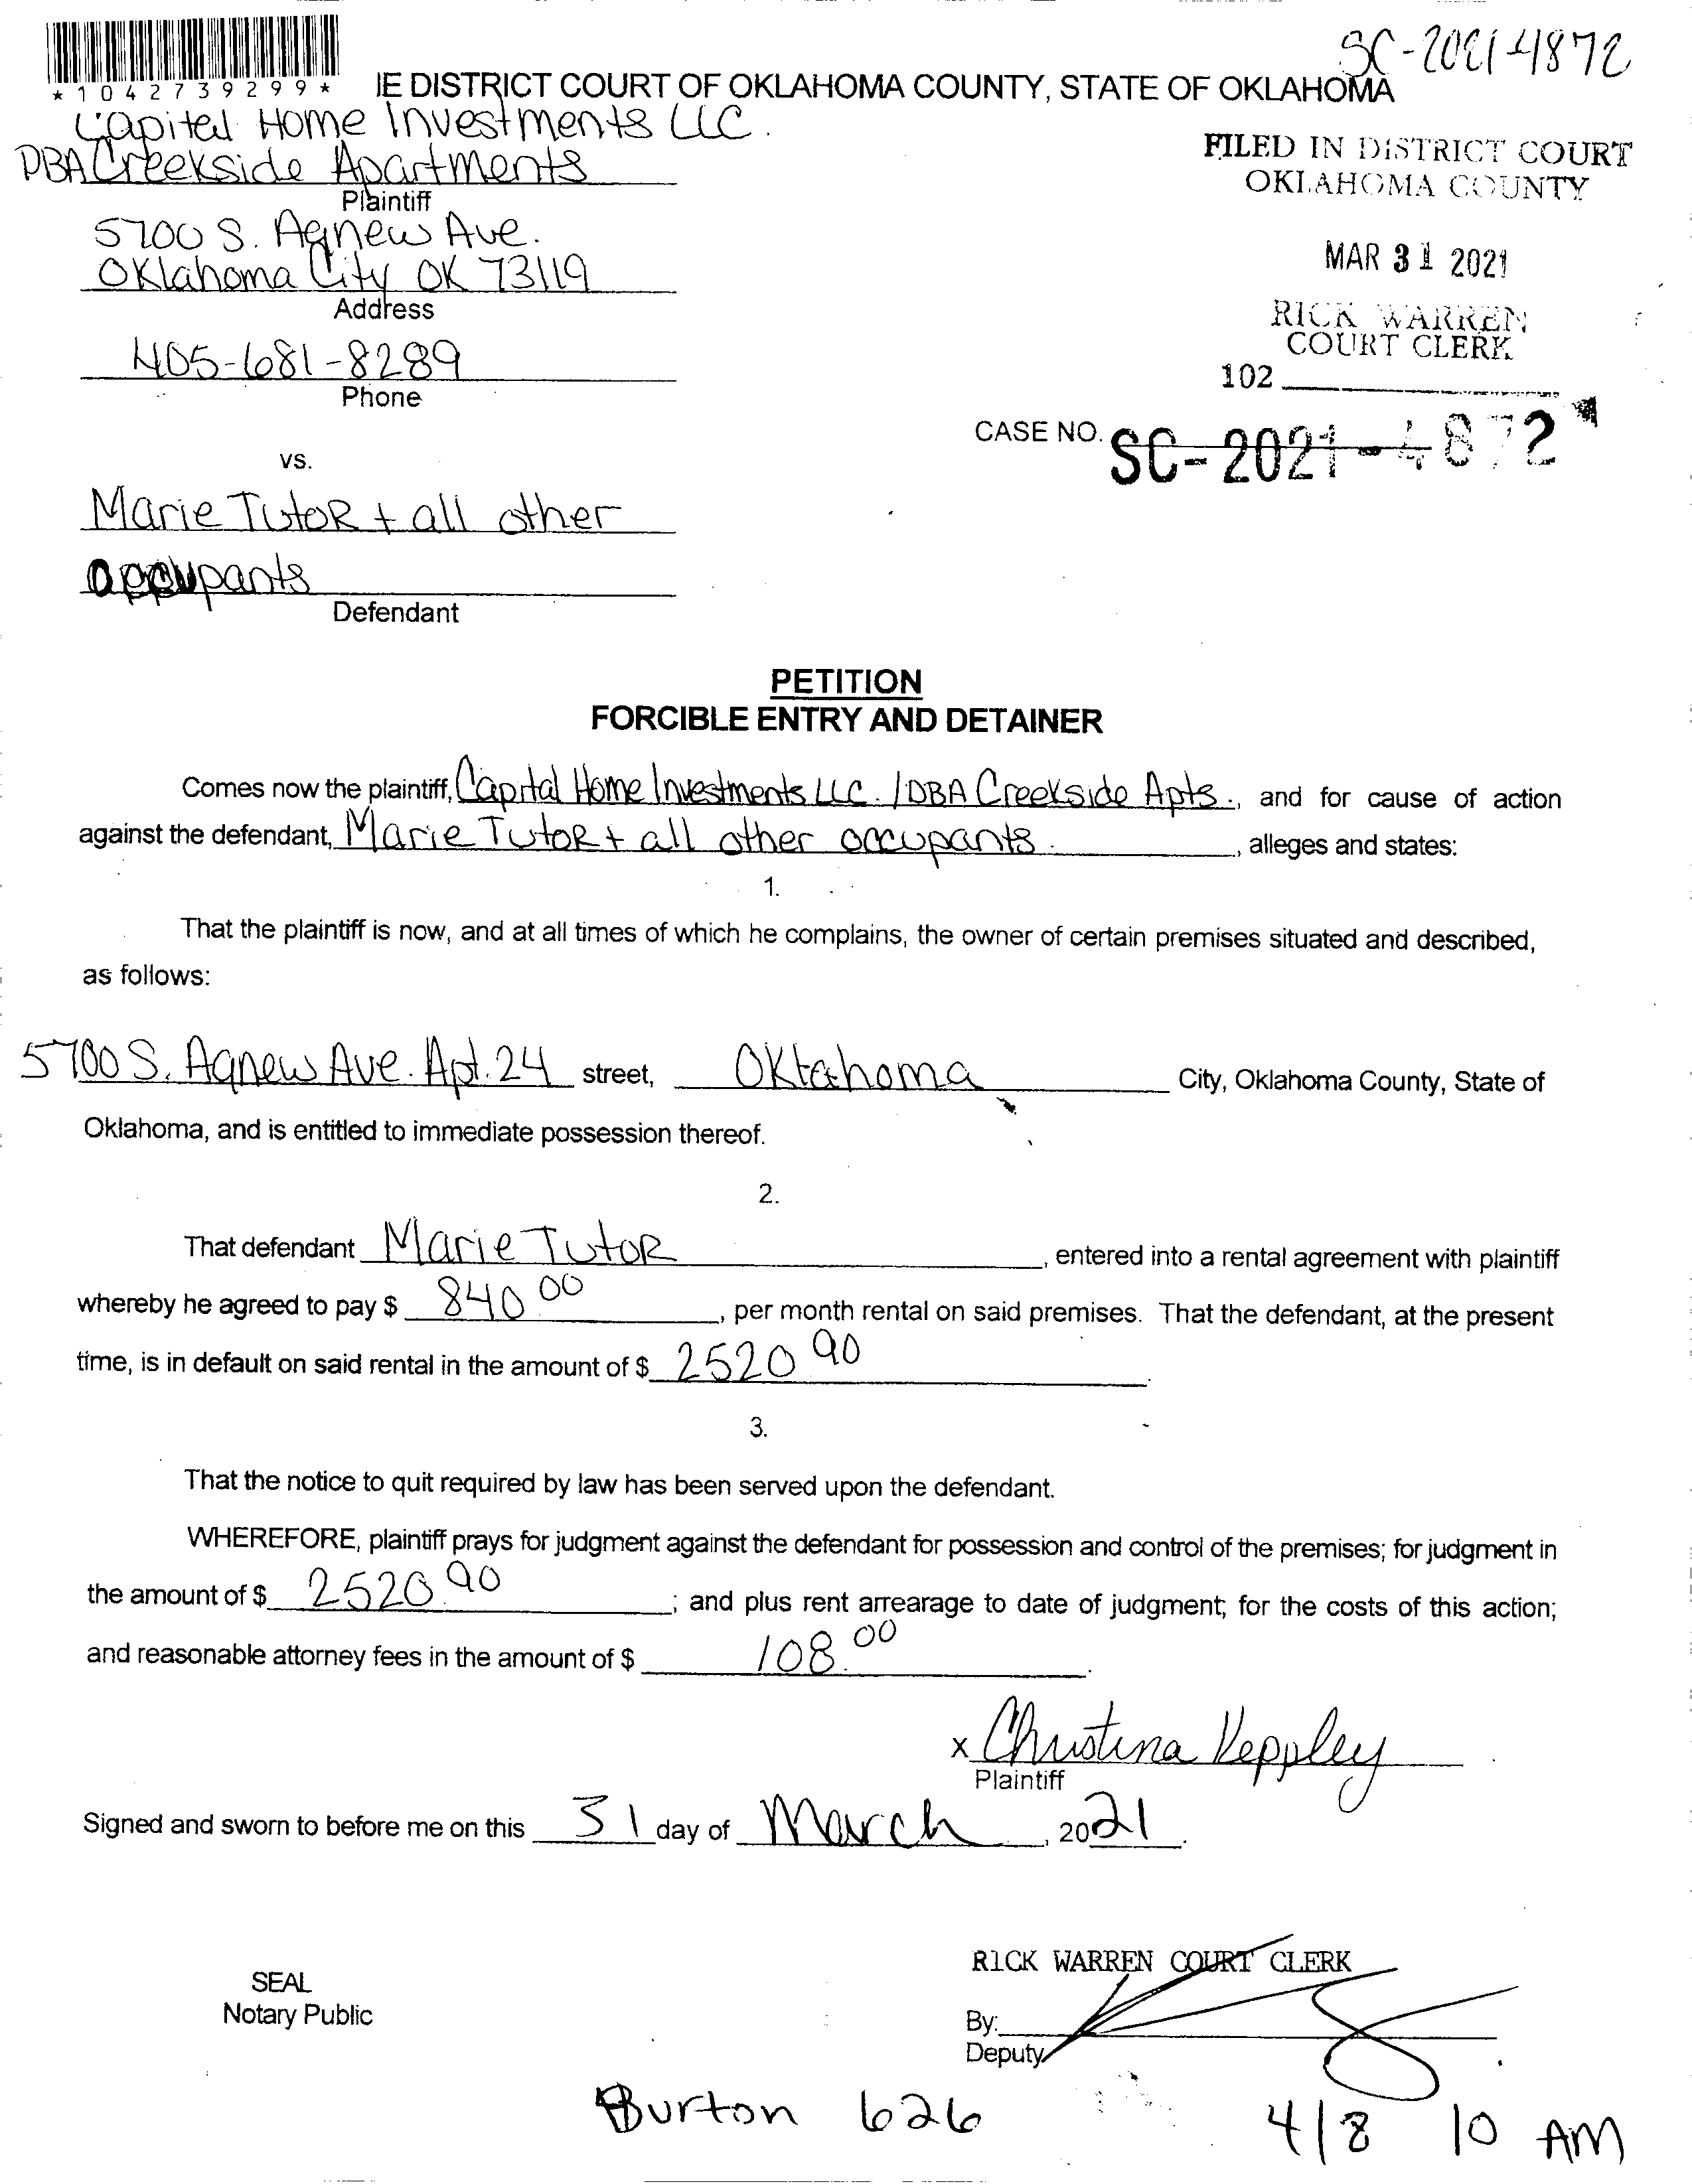 SC-2021-4872
*1042739299*
IE DISTRICT COURT OF OKLAHOMA COUNTY, STATE OF OKLAHOMA
Capital Home Investments LLC.
DBA Creekside Apartments
Plaintiff
5700 S. Agnew Ave.
Oklahoma City OK 73119
Address
405-681-8289
Phone
FILED IN DISTRICT COURT
OKLAHOMA COUNTY
MAR 31 2021
RICK WARREN
COURT CLERK
102
CASE NO. SC-2021-4872
vs.
Marie Tutor + all other
occupants
Defendant
PETITION
FORCIBLE ENTRY AND DETAINER
Comes now the plaintiff, Capital Home Investments LLC. / DBA Creekside Apts., and for cause of action
against the defendant, Marie Tutor + all other occupants., alleges and states:
1.
That the plaintiff is now, and at all times of which he complains, the owner of certain premises situated and described,
as follows:
5700 S. Agnew Ave. Apt. 24 street, Oklahoma City, Oklahoma County, State of
Oklahoma, and is entitled to immediate possession thereof.
2.
That defendant Marie Tutor, entered into a rental agreement with plaintiff
whereby he agreed to pay $ 840.00, per month rental on said premises. That the defendant, at the present
time, is in default on said rental in the amount of $ 2520 90.
3.
That the notice to quit required by law has been served upon the defendant.
WHEREFORE, plaintiff prays for judgment against the defendant for possession and control of the premises; for judgment in
the amount of $ 2520.90; and plus rent arrearage to date of judgment; for the costs of this action;
and reasonable attorney fees in the amount of $ 108.00.
x Christina Keppley
Plaintiff
Signed and sworn to before me on this 31 day of March, 2021.
SEAL
Notary Public
RICK WARREN COURT CLERK
By:
Deputy
Burton 626
4/8 10 AM